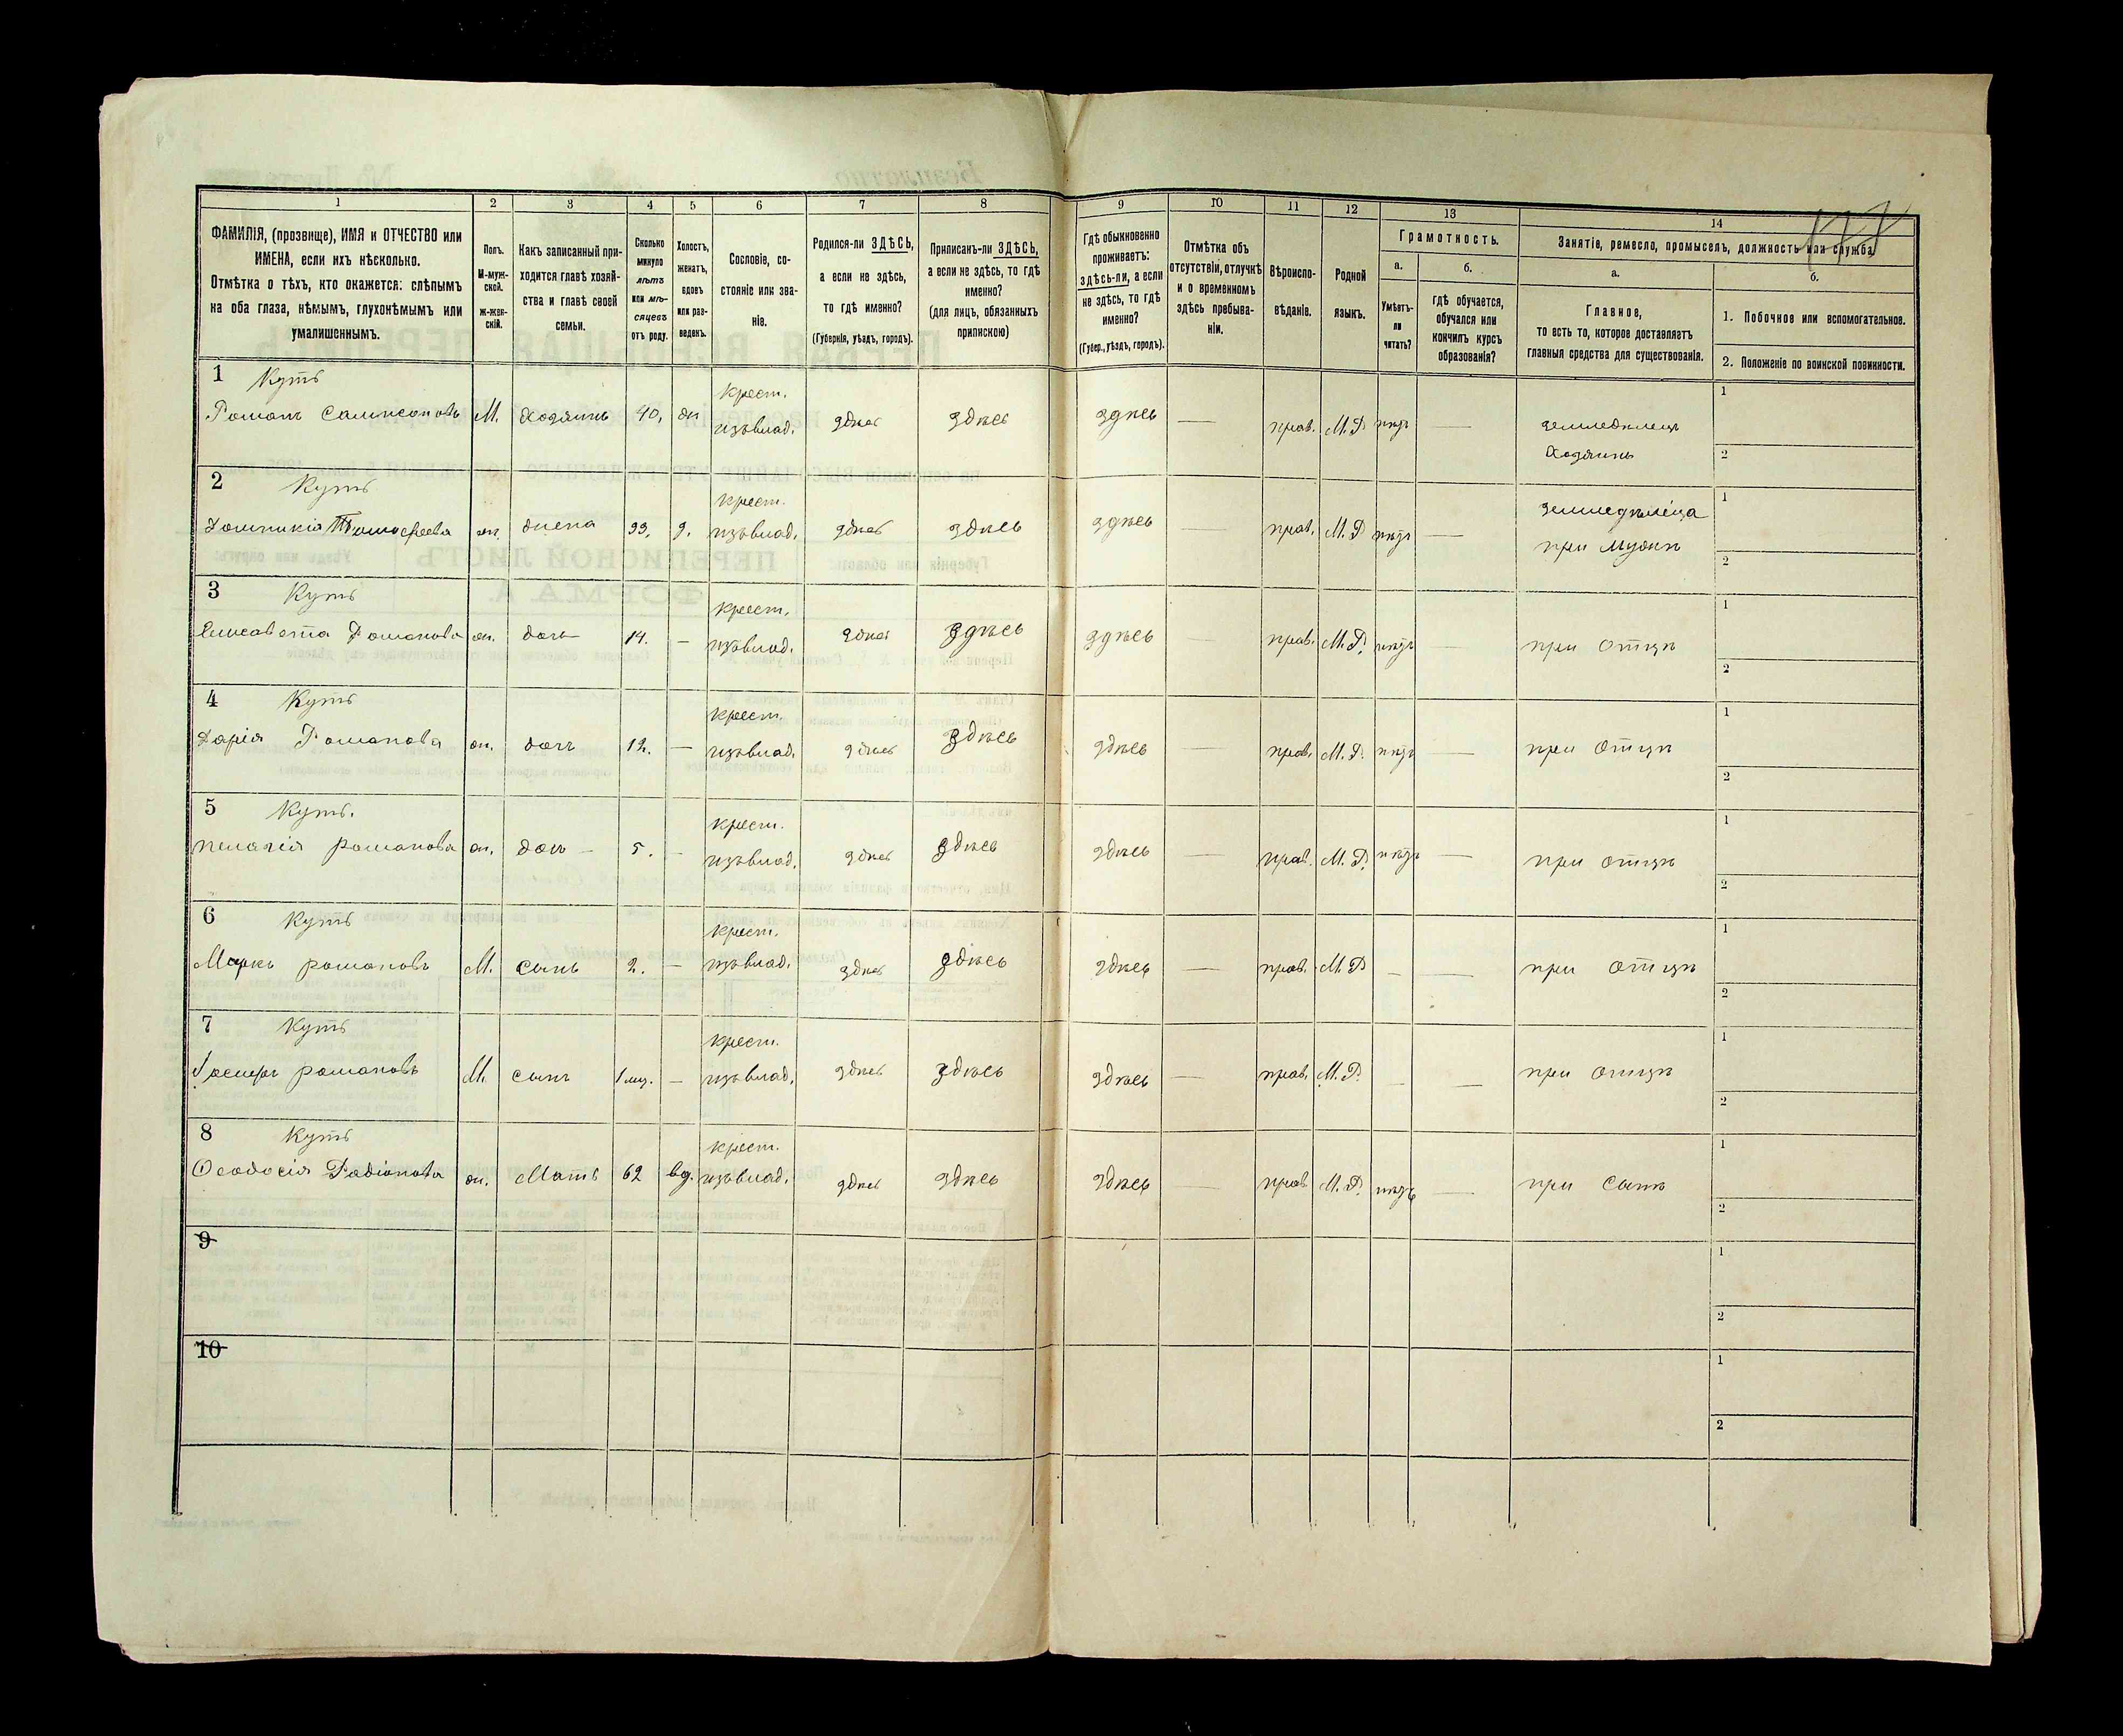 177
1 2 3 4 5 6 7 8 9 10 11 12 13 14
ФАМИЛІЯ, (прозвище), ИМЯ и ОТЧЕСТВО или
ИМЕНА, если ихъ нѣсколько.
Отмѣтка о тѣхъ, кто окажется: слѣпымъ
на оба глаза, нѣмымъ, глухонѣмымъ или
умалишеннымъ.
Полъ.
М-муж-
ской.
ж-жен-
скій.
Какъ записанный при-
ходится главѣ хозяй-
ства и главѣ своей
семьи.
Сколько
минуло
лѣтъ
или мѣ-
сяцевъ
отъ роду.
Холостъ,
женатъ,
вдовъ
или раз-
веденъ.
Сословіе, со-
стояніе или зва-
ніе.
Родился-ли ЗДѢСЬ,
а если не здѣсь,
то гдѣ именно?
(Губернія, уѣздъ, городъ).
Приписанъ-ли ЗДѢСЬ,
а если не здѣсь, то гдѣ
именно?
(для лицъ, обязанныхъ
припискою)
Гдѣ обыкновенно
проживаетъ:
здѣсь-ли, а если
не здѣсь, то гдѣ
именно?
(Губер., уѣздъ, городъ).
Отмѣтка объ
отсутствіи, отлучкѣ
и о временномъ
здѣсь пребыва-
ніи.
Вѣроиспо-
вѣданіе.
Родной
языкъ.
Грамотность.
а.
Умѣетъ-
ли
читать?
б.
гдѣ обучается,
обучался или
кончилъ курсъ
образованія?
Занятіе, ремесло, промыселъ, должность или служба.
а.
Главное,
то есть то, которое доставляетъ
главныя средства для существованія.
б.
1. Побочное или вспомогательное.
2. Положеніе по воинской повинности.
1 Куть крест. 1
Романъ Самисоновъ М. Хозяинъ 40, жн изъ влад. здѣсь здѣсь здѣсь — прав. М.Р. нѣтъ — земледѣлецъ
Хозяинъ 2
2 Куть крест. земледѣлица 1
Домникія Тимофеева ж. жена 33, з. изъ влад. здѣсь здѣсь здѣсь — прав. М.Р. нѣтъ — при мужѣ 2
3 Куть крест. 1
Елисавета Романова ж. дочь 14. — изъ влад. здѣсь здѣсь здѣсь — прав. М.Р. нѣтъ — при отцѣ 2
4 Куть крест. 1
Дарія Романова ж. дочь 12. — изъ влад. здѣсь здѣсь здѣсь — прав. М.Р. нѣтъ — при отцѣ 2
5 Куть. крест. 1
Пелагія Романова ж. дочь 5. — изъ влад. здѣсь здѣсь здѣсь — прав. М.Р. нѣтъ — при отцѣ 2
6 Куть крест. 1
Маркъ Романовъ М. сынъ 2. — изъ влад. здѣсь здѣсь здѣсь — прав. М.Р. — — при отцѣ 2
7 Куть крест. 1
Романовъ М. сынъ 1 мц. — изъ влад. здѣсь здѣсь здѣсь — прав. М.Р. — — при отцѣ 2
8 Куть крест. 1
Ѳеодосія Радіонова ж. Мать 62 вд. изъ влад. здѣсь здѣсь здѣсь — прав. М.Р. нѣтъ — при сынѣ 2
9 1
2
10 1
2